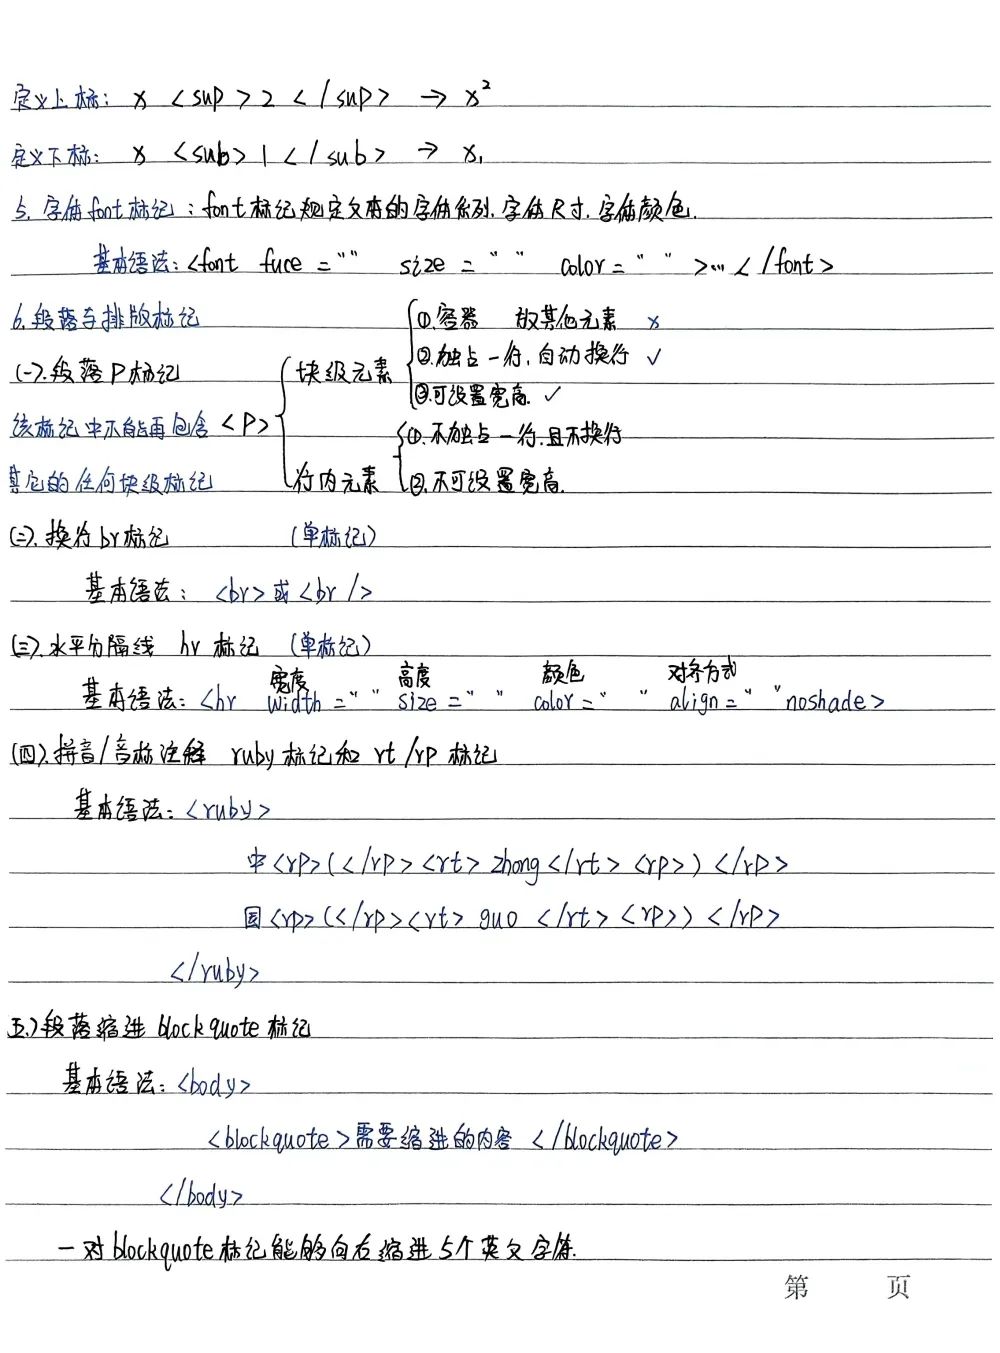 定义上标: x <sup>2</sup> → x²
定义下标: x <sub>1</sub> → x₁
5. 字体font标记：font标记规定文本的字体系列.字体尺寸.字体颜色.
基本语法：<font face="" size="" color="">…</font>
6.段落与排版标记
①.容器 放其他元素 x
(一).段落P标记
块级元素
②.独占一行,自动换行 ✓
③.可设置宽高. ✓
该标记中不能再包含 <P>
①.不独占一行.且不换行
其它的任何块级标记
行内元素
②.不可设置宽高.
(二).换行br标记 (单标记)
基本语法： <br>或<br/>
(三).水平分隔线 hr 标记 (单标记)
宽度 高度 颜色 对齐方式
基本语法：<hr width="" size="" color="" align="" noshade>
(四).拼音/音标注释 ruby标记和 rt/rp 标记
基本语法：<ruby>
中<rp>(</rp><rt>zhong</rt><rp>)</rp>
国<rp>(</rp><rt>guo</rt><rp>)</rp>
</ruby>
五.)段落缩进 blockquote标记
基本语法：<body>
<blockquote>需要缩进的内容</blockquote>
</body>
一对blockquote标记能够向右缩进5个英文字符.
第 页